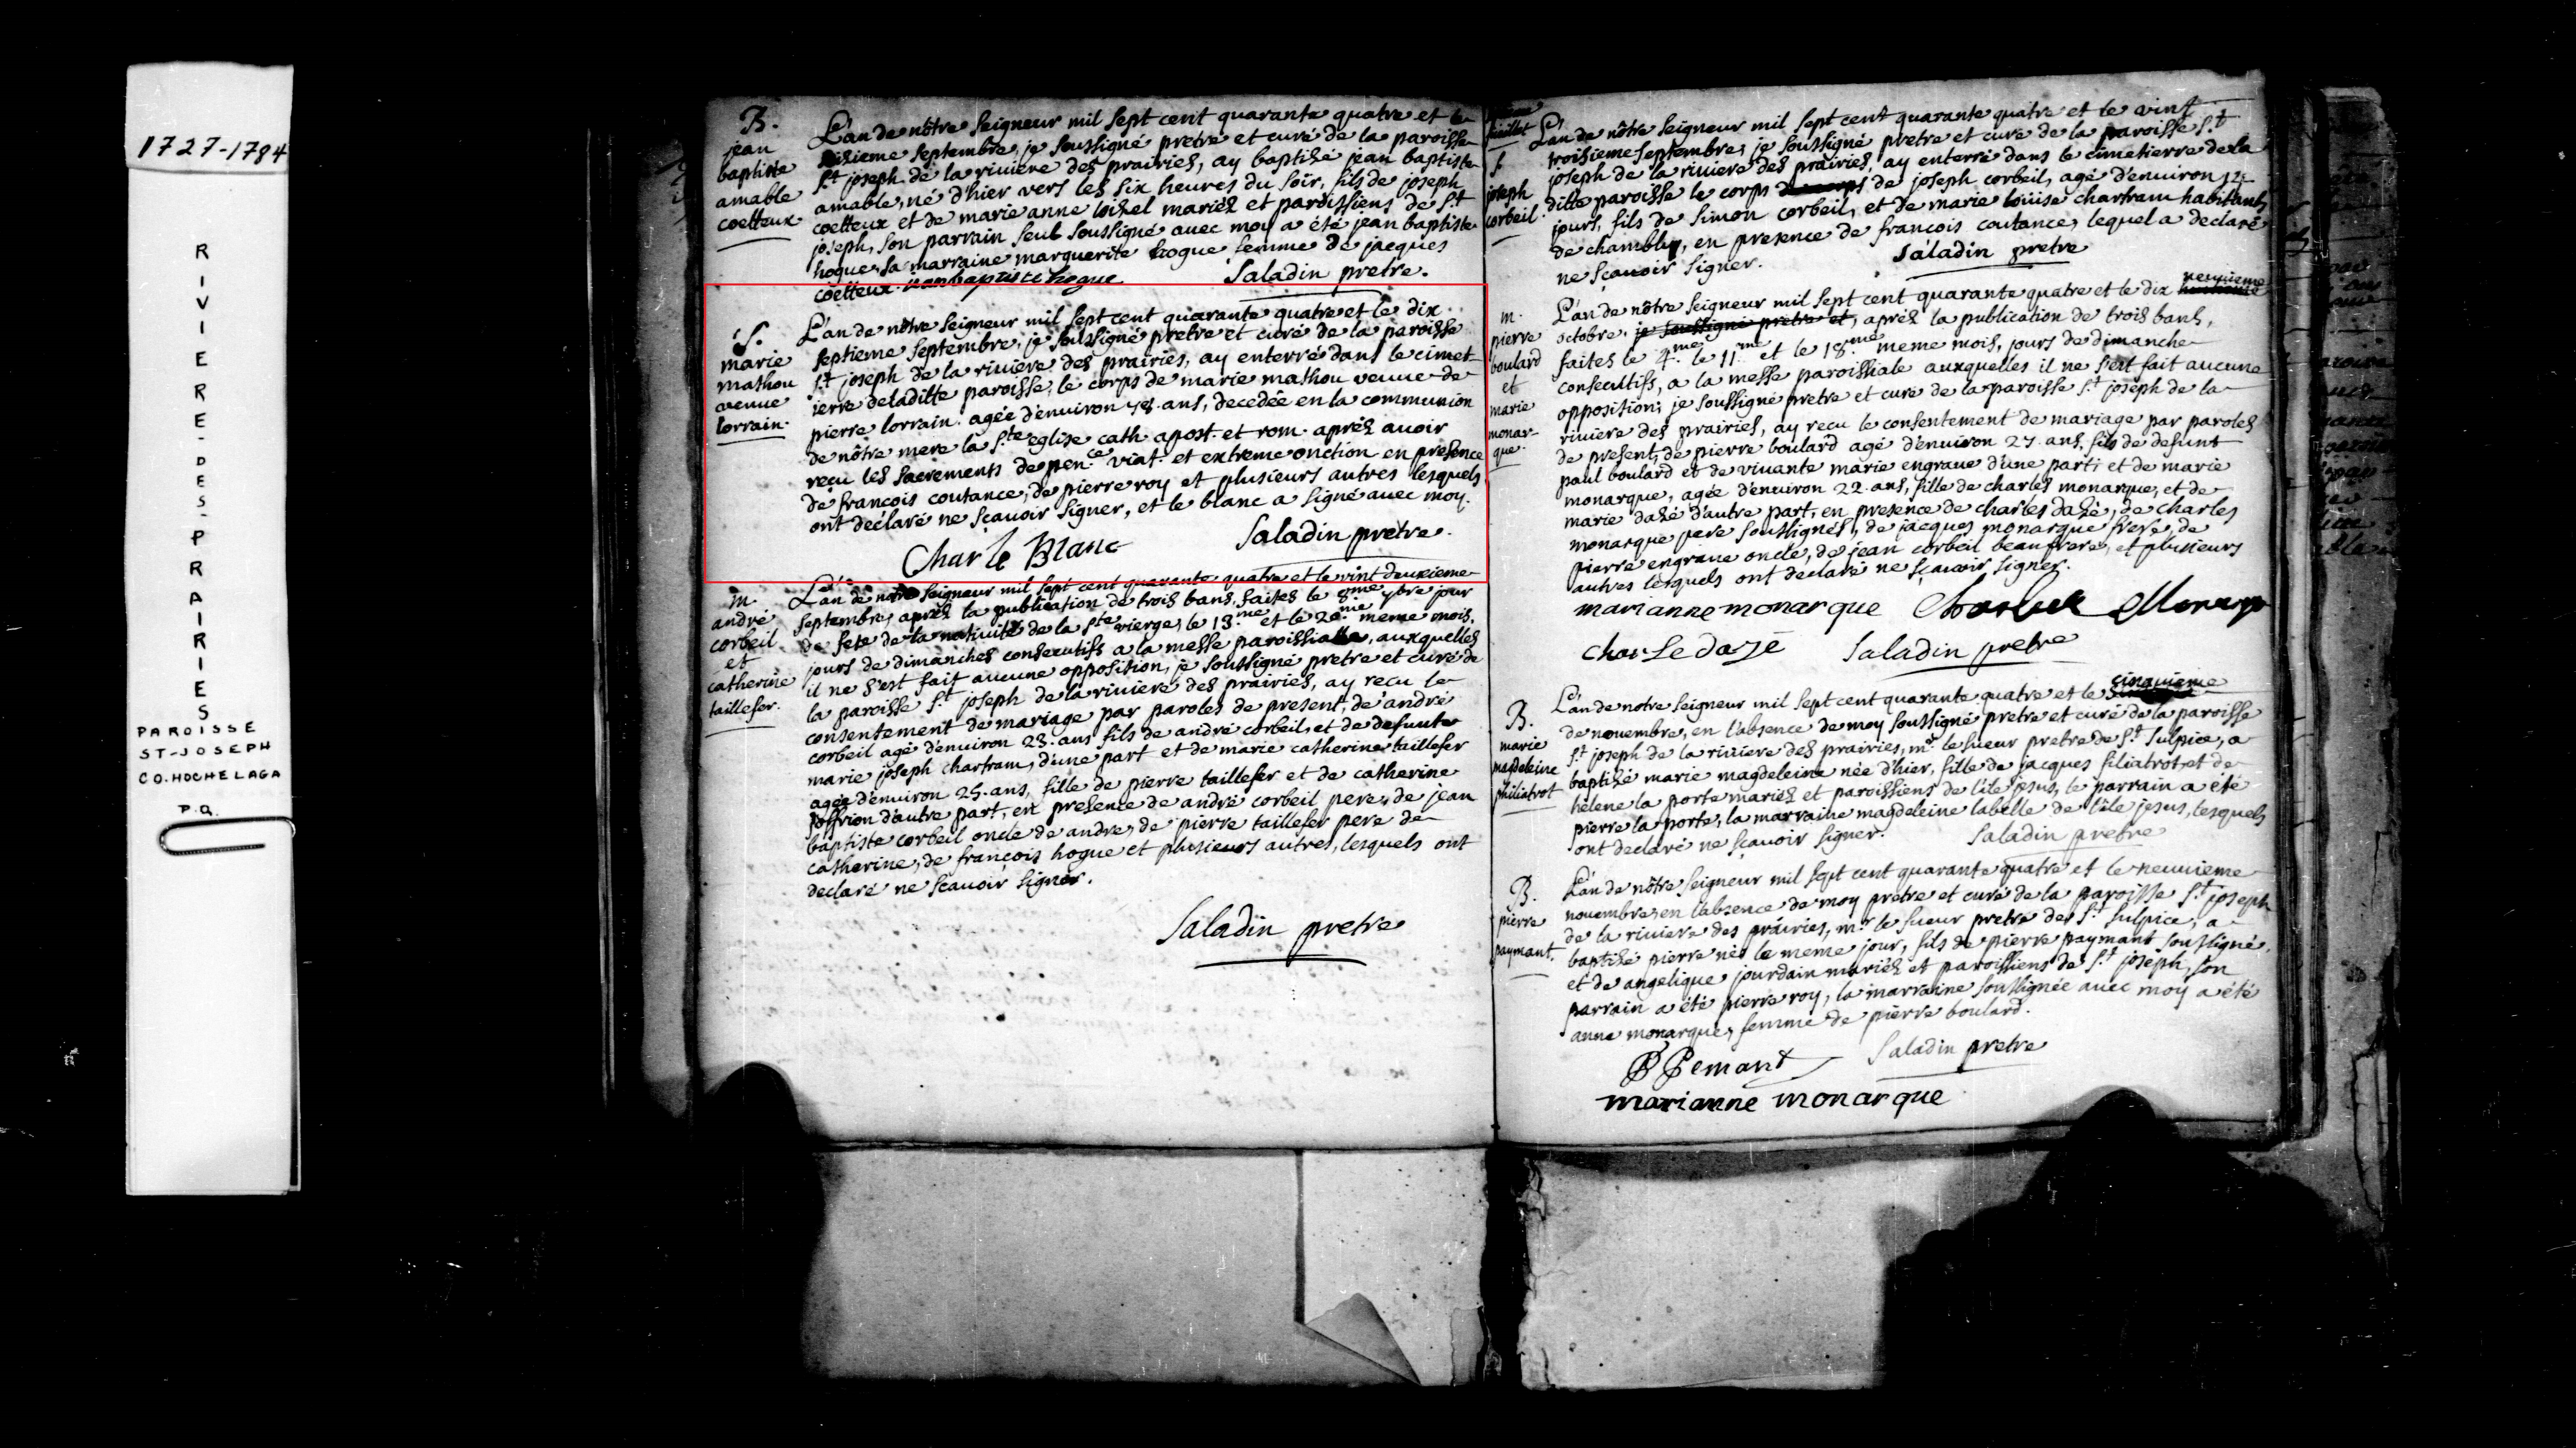 1727-1784
RIVIERE-DES-PRAIRIES
PAROISSE
ST-JOSEPH
CO. HOCHELAGA
P.Q.
B.
jean
baptiste
amable
coetteux
L'an de nôtre seigneur mil sept cent quarante quatre et le
septembre, je soussigné pretre et curé de la paroisse
st joseph de la riviere des prairies, ay baptizé jean baptiste
amable, né d'hier vers les six heures du soir, fils de joseph
coetteux et de marie anne loizel mariez et paroissiens de st
joseph, son parrain seul soussigné avec moy a été jean baptiste
hogue, sa marraine marguerite hogue femme de jacques
coetteux. jean baptiste hogue Saladin pretre.
S.
marie
mathou
veuve
lorrain.
L'an de nôtre seigneur mil sept cent quarante quatre et le dix
septieme septembre, je soussigné pretre et curé de la paroisse
st joseph de la riviere des prairies, ay enterré dans le cimet-
ierre de laditte paroisse, le corps de marie mathou veuve de
pierre lorrain. agée d'environ 78. ans, decedée en la communion
de nôtre mere la ste eglise cath. apost. et rom. apréz avoir
reçu les sacrements de pence viat. et extreme onction en presence
de françois coutance, de pierre roy et plusieurs autres lesquels
ont declaré ne sçavoir signer, et le blanc a signé avec moy.
Char le Blanc Saladin pretre.
m.
andré
corbeil
et
catherine
taillefer.
L'an de notre seigneur mil sept cent quarante quatre et le vint deuxieme
septembre, apréz la publication de trois bans, faites le 8me 7bre jour
de fete de la nativité de la ste vierge, le 13.me et le 20.me meme mois,
jours de dimanches consecutifs a la messe paroissialle, auxquelles
il ne s'est fait aucune opposition, je soussigné pretre et curé de
la paroisse st joseph de la riviere des prairies, ay recu le
consentement de mariage par paroles de present, de andré
corbeil agé d'environ 23. ans fils de andré corbeil, et de defunte
marie joseph chartram, d'une part et de marie catherine taillefer
agée d'environ 25. ans, fille de pierre taillefer et de catherine
joffrion d'autre part, en presence de andré corbeil pere, de jean
baptiste corbeil oncle de andre, de pierre taillefer pere de
catherine, de françois hogue et plusieurs autres, lesquels ont
declaré ne sçavoir signer.
Saladin pretre
S.
joseph
corbeil.
L'an de nôtre seigneur mil sept cent quarante quatre et le vint
troisieme septembre, je soussigné pretre et curé de la paroisse st
joseph de la riviere des prairies, ay enterré dans le cimetierre de la
ditte paroisse le corps de joseph corbeil, agé d'environ
jours, fils de simon corbeil, et de marie loüise chartram habitants
de chambly, en presence de francois coutance, lequel a declaré
ne sçavoir signer. Saladin pretre
m.
pierre
boulard
et
marie
monar-
que.
L'an de nôtre seigneur mil sept cent quarante quatre et le dix neuvieme
octobre. je soussigné pretre et, apréz la publication de trois bans,
faites le 4.me le 11.me et le 18.me meme mois, jours de dimanche
consecutifs, a la messe paroissiale auxquelles il ne s'est fait aucune
opposition; je soussigné pretre et curé de la paroisse st joseph de la
riviere des prairies, ay recu le consentement de mariage par paroles
de present, de pierre boulard agé d'environ 27. ans, fils de defunt
paul boulard et de vivante marie engrave d'une part; et de marie
monarque, agée d'environ 22. ans, fille de charles monarque, et de
marie dazé d'autre part, en presence de charles dazé, de charles
monarque pere soussignés, de jacques monarque frere, de
pierre engrave oncle, de jean corbeil beaufrere, et plusieurs
autres lesquels ont declaré ne sçavoir signer.
marianne monarque
charle dazé Saladin pretre
B.
marie
magdeleine
philiatrot
L'an de notre seigneur mil sept cent quarante quatre et le cinquieme
de novembre, en l'absence de moy soussigné pretre et curé de la paroisse
st joseph de la riviere des prairies, mr. le sueur pretre de st Sulpice, a
baptizé marie magdeleine née d'hier, fille de jacques filiatrot, et de
helene la porte mariez et paroissiens de l'ile jesus, le parrain a été
pierre la porte, la marraine magdeleine labelle de l'ile jesus, lesquels
ont declaré ne sçavoir signer. Saladin pretre
B.
pierre
paymant.
L'an de nôtre seigneur mil sept cent quarante quatre et le neuvieme
novembre, en l'absence de moy pretre et curé de la paroisse st joseph
de la riviere des prairies, mr. le sueur pretre de st Sulpice, a
baptizé pierre né le meme jour, fils de pierre paymant soussigné,
et de angelique jourdain mariéz et paroissiens de st joseph, son
parrain a été pierre roy, la marraine soussignée avec moy a été
anne monarque, femme de pierre boulard.
P Pemant Saladin pretre
marianne monarque